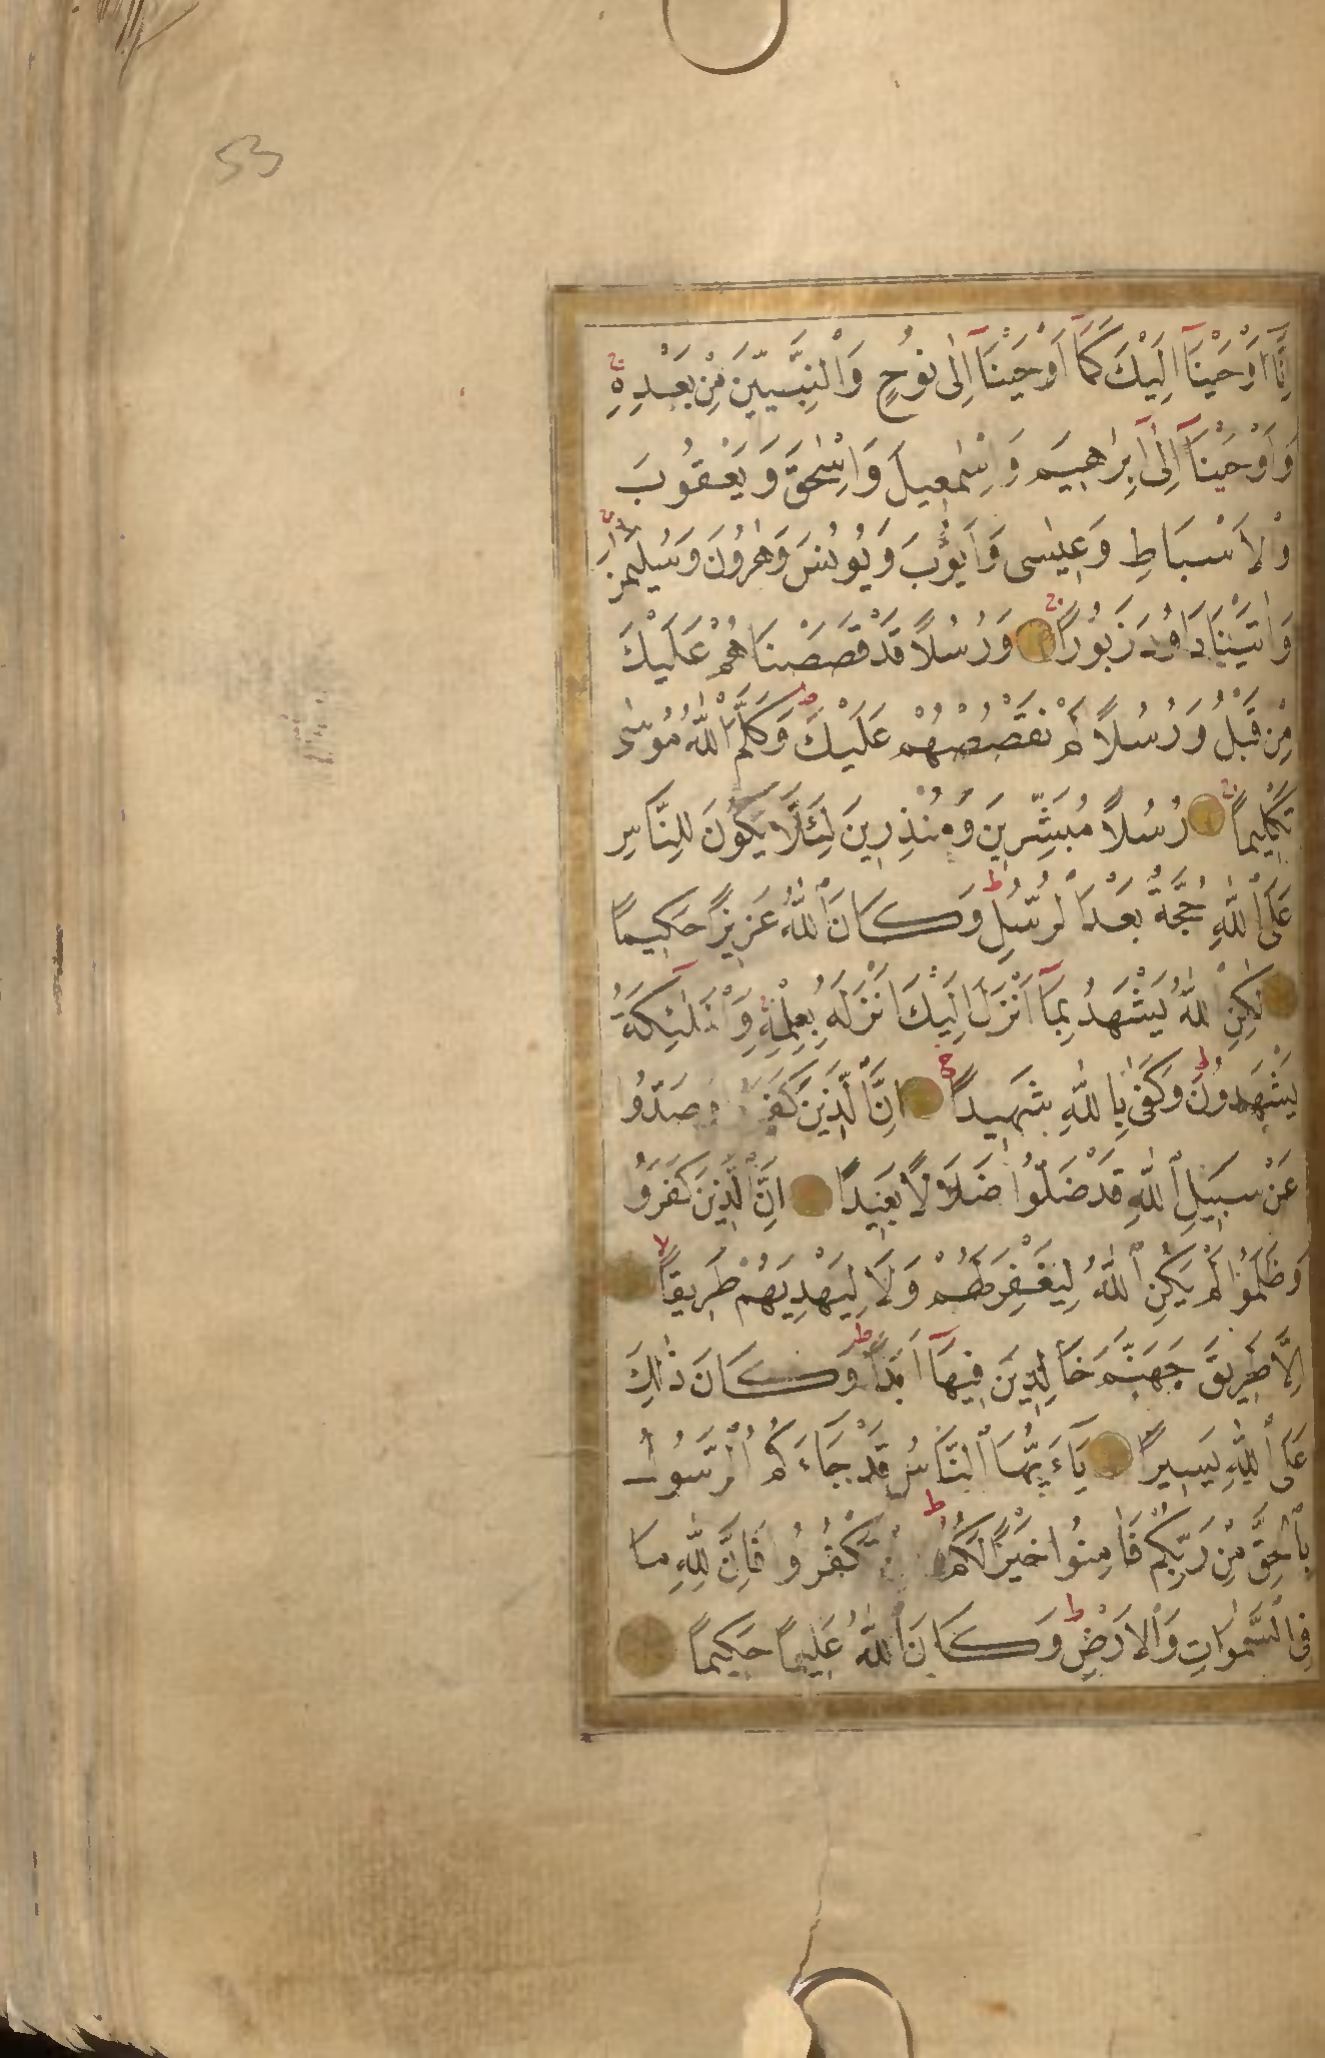 53
اِنَّا اَوْحَيْنَا اِلَيْكَ كَمَا اَوْحَيْنَا اِلٰى نُوحٍ وَالنَّبِيّيِنَ مِنْ بَعْدِهِ
وَاَوْحَيْنَا اِلٰى اِبْرٰهِيمَ وَاِسْمٰعِيلَ وَاِسْحٰقَ وَيَعْقُوبَ
وَالْاَسْبَاطِ وَعِيسٰى وَاَيُّوبَ وَيُونُسَ وَهٰرُونَ وَسُلَيْمٰنَ
وَاٰتَيْنَا دَاوُدَ زَبُورًا وَرُسُلًا قَدْ قَصَصْنَاهُمْ عَلَيْكَ
مِنْ قَبْلُ وَرُسُلًا لَمْ نَقْصُصْهُمْ عَلَيْكَ وَكَلَّمَ اللّٰهُ مُوسٰى
تَكْلِيمًا رُسُلًا مُبَشِّرِينَ وَمُنْذِرِينَ لِئَلَّا يَكُونَ لِلنَّاسِ
عَلَى اللّٰهِ حُجَّةٌ بَعْدَ الرُّسُلِ وَكَانَ اللّٰهُ عَزِيزًا حَكِيمًا
لٰكِنِ اللّٰهُ يَشْهَدُ بِمَا اَنْزَلَ اِلَيْكَ اَنْزَلَهُ بِعِلْمِهِ وَالْمَلٰئِكَةُ
يَشْهَدُونَ وَكَفٰى بِاللّٰهِ شَهِيدًا اِنَّ الَّذِينَ كَفَرُوا وَصَدُّوا
عَنْ سَبِيلِ اللّٰهِ قَدْ ضَلُّوا ضَلَالًا بَعِيدًا اِنَّ الَّذِينَ كَفَرُوا
وَظَلَمُوا لَمْ يَكُنِ اللّٰهُ لِيَغْفِرَ لَهُمْ وَلَا لِيَهْدِيَهُمْ طَرِيقًا
اِلَّا طَرِيقَ جَهَنَّمَ خَالِدِينَ فِيهَا اَبَدًا وَكَانَ ذٰلِكَ
عَلَى اللّٰهِ يَسِيرًا يَاءَيُّهَا النَّاسُ قَدْ جَاءَكُمُ الرَّسُولُ
بِالْحَقِّ مِنْ رَبِّكُمْ فَاٰمِنُوا خَيْرًا لَكُمْ تَكْفُرُوا فَاِنَّ لِلّٰهِ مَا
فِى السَّمٰوَاتِ وَالْاَرْضِ وَكَانَ اللّٰهُ عَلِيمًا حَكِيمًا